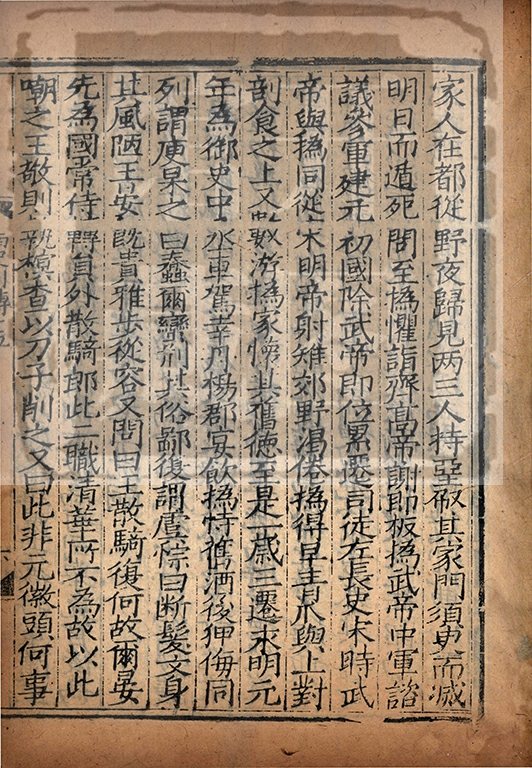 家人在都從野夜歸見两三人持堊㕞其家門須臾而滅
明日而遁死問至撝懼詣齊髙帝謝即板撝武帝中軍諮
議參軍建元初國除武帝即位累遷司徒左長史宋時武
帝與撝同從宋明帝射雉郊野渴倦撝得早青瓜與上對
剖食之上又數游撝家懷其舊徳至是一歲三遷永明元
年為御史中丞車駕幸丹楊郡宴飲撝恃舊酒後狎侮同
列謂庾杲之曰蠢爾蠻荆其俗鄙復謂虞悰曰断髮文身
其風陋王晏既貴雅步從容又問曰王散騎復何故爾晏
先為國常侍轉貟外散騎郎此二職清華所不為故以此
嘲之王敬則執榠查以刀子削之又曰此非元徽頭何事